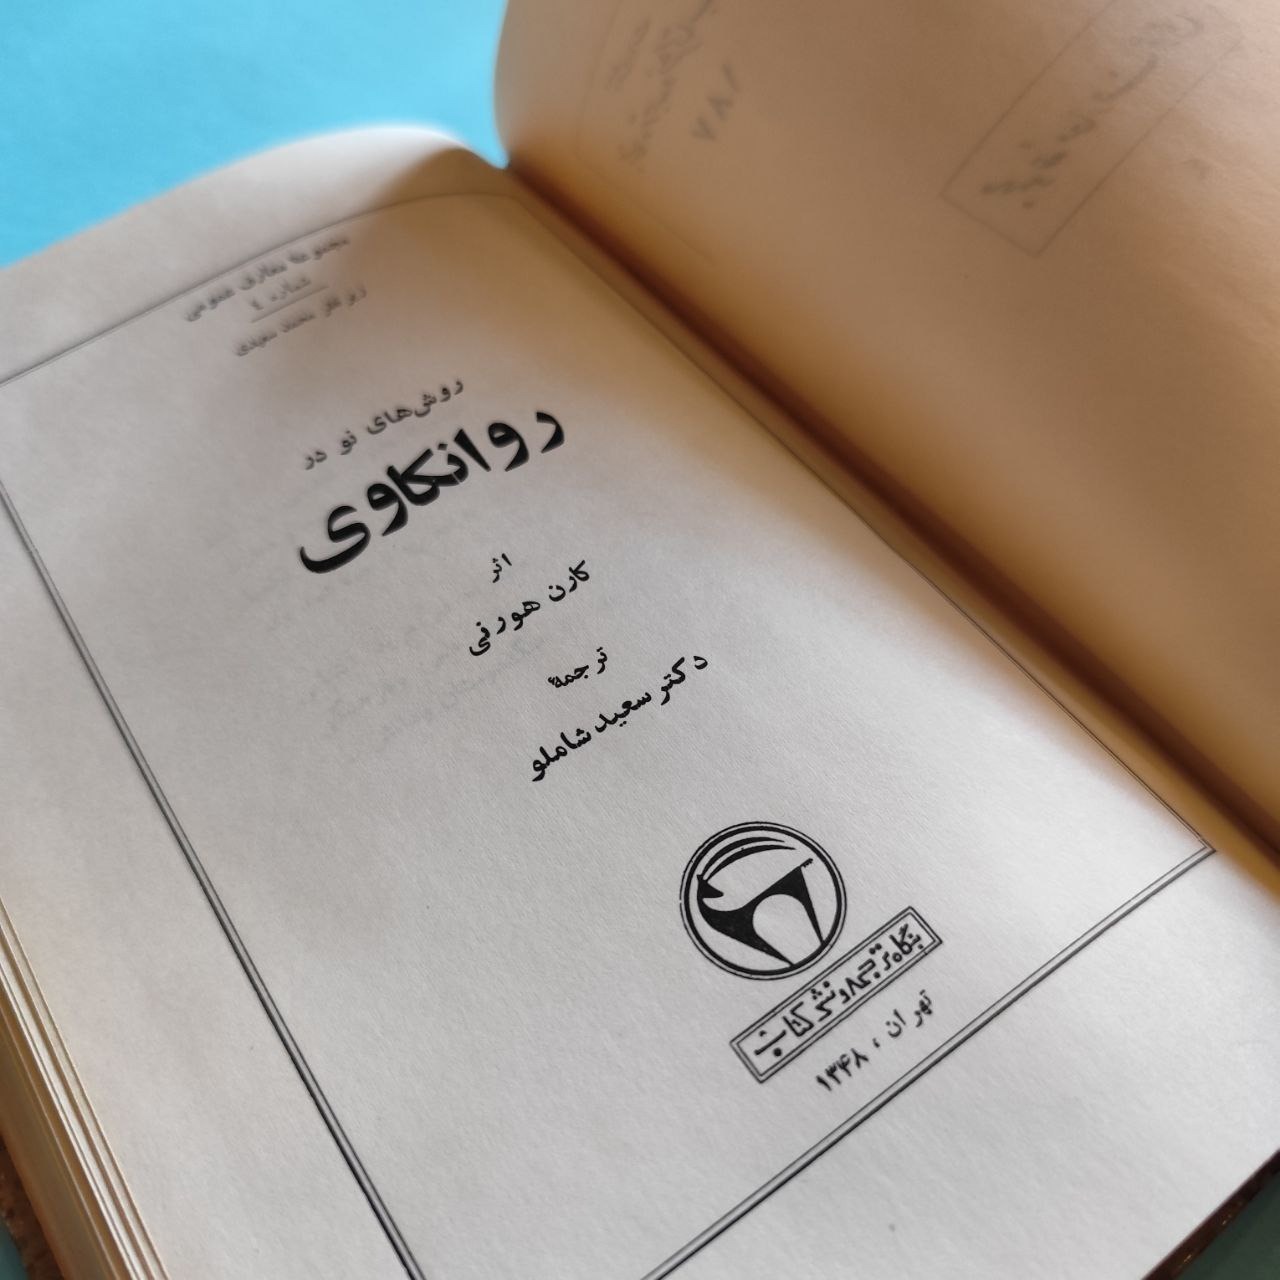 مجموعه معارف عمومی
شماره ٤
زیر نظر محمد سعیدی
روش‌های نو در
روانکاوی
اثر
کارن هورنی
ترجمهٔ
دکتر سعید شاملو
بنگاه ترجمه و نشر کتاب
تهران ، ۱۳۴۸